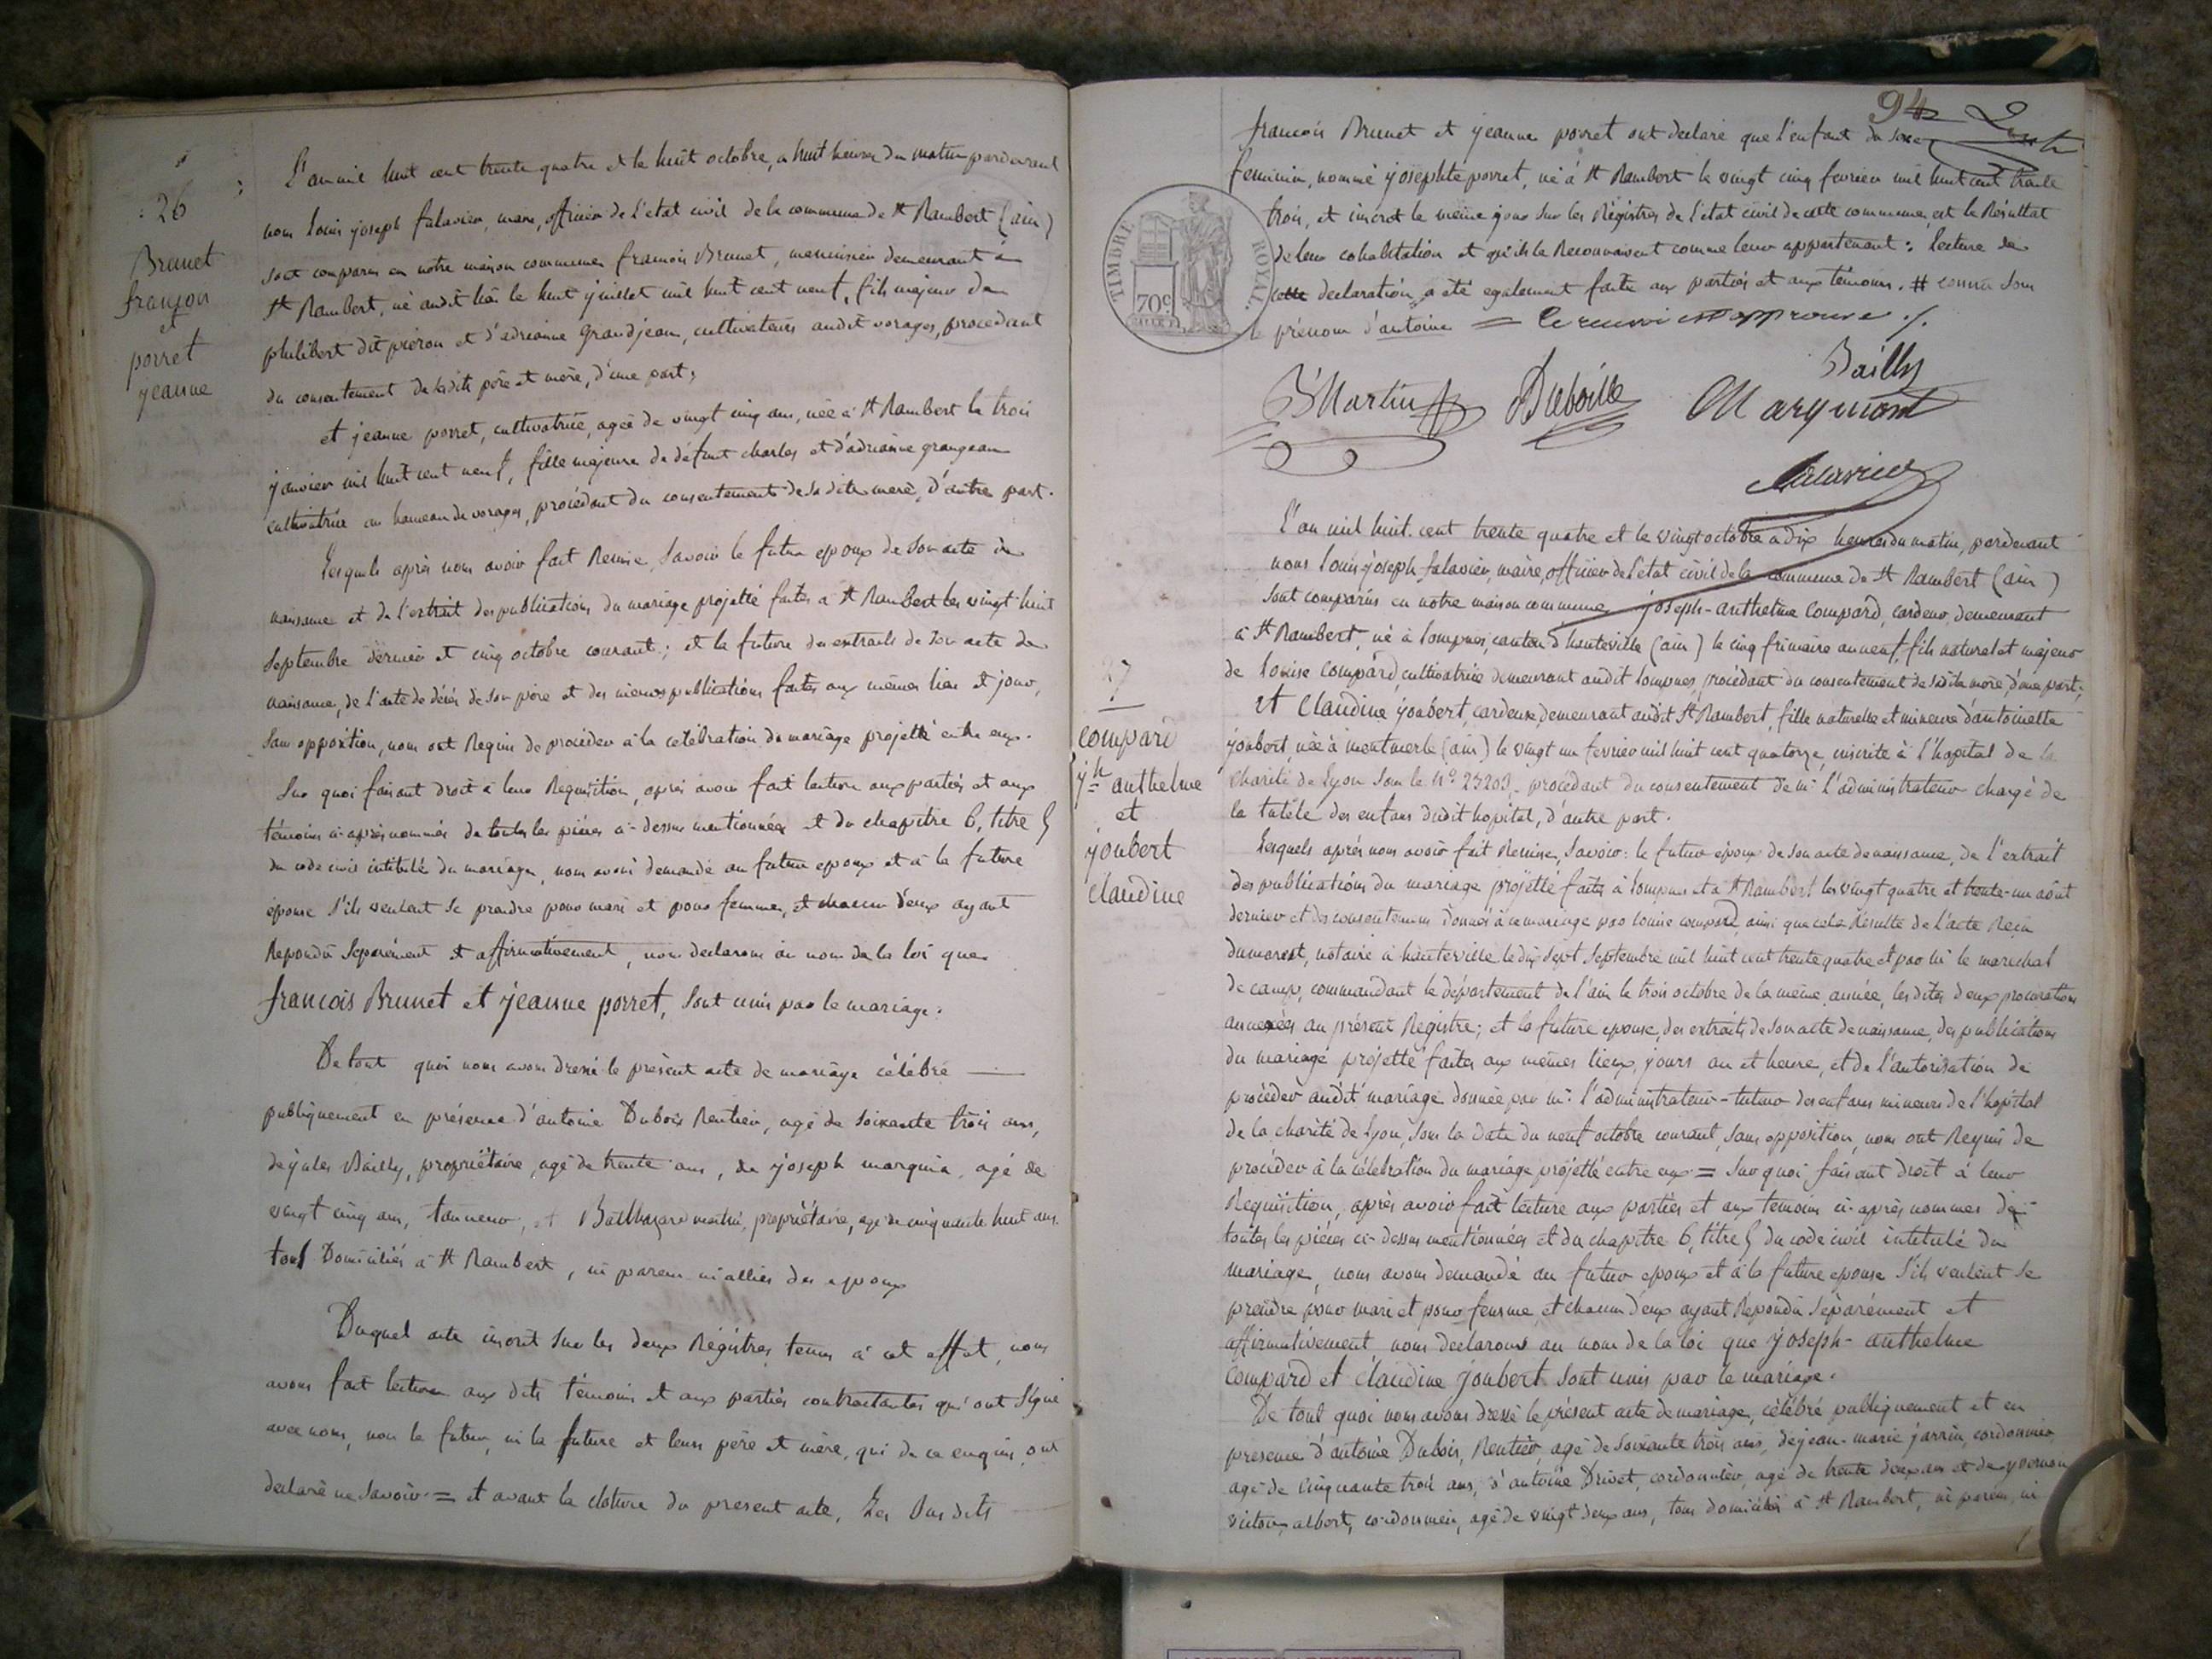 26
Brunet
françois
et
porret
jeanne
L'an mil huit cent trente quatre et le huit octobre, a huit heures du matin pardevant
nous Louis joseph falavier, maire, officier de l'etat civil de la commune de St Rambert (ain)
sont comparus en notre maison commune francois Brunet, menuisier demeurant à
St Rambert, né audit lieu le huit juillet mil huit cent neuf, fils majeur de
philibert dit pieron et d'adrianne Grandjean, cultivateurs audit vorages, procedant
du consentement de sesdits père et mère, d'une part;
et jeanne porret, cultivatrice, agée de vingt cinq ans, née à St Rambert le trois
janvier mil huit cent neuf, fille majeure de défunt charles et d'adrianne grangean
cultivatrice au hameau de vorages, procédant du consentement de sa dite mere, d'autre part.
Lesquels après nous avoir fait Remise, Savoir le futur epoux de son acte de
naissance et de l'extrait des publications du mariage projetté faites a St Rambert les vingt huit
Septembre dernier et cinq octobre courant; et la future des extraits de son acte de
naissance, de l'acte de décés de son père et des mêmes publications faites aux mêmes lieu et jour,
sans opposition, nous ont Requis de procéder à la celébration du mariage projetté entre eux.
Sur quoi faisant droit à leur Requisition, après avoir fait lecture aux parties et aux
témoins ci-après nommés de toutes les pièces ci-dessus mentionnées et du chapitre 6, titre 5
du code civil intitulé du mariage, nous avons demandé au futur epoux et à la future
épouse s'ils veulent se prendre pour mari et pour femme, et chacun d'eux ayant
Repondu Separément et affirmativement, nous declarons au nom de la loi que
francois Brunet et jeanne porret, sont unis par le mariage.
De tout quoi nous avons dressé le présent acte de mariage célébré
publiquement en présence d'antoine Dubois Rentier, agé de soixante trois ans,
de jules Bailly, propriétaire, agé de trente ans, de joseph marquia, agé de
vingt cinq ans, tanneur, et Balthazard martin, propriétaire, agé de cinquante huit ans.
tous Domiciliés à St Rambert, ni parens ni alliés des epoux
Duquel acte inscrit sur les deux Régistres tenus à cet effet, nous
avons fait lecture aux dits témoins et aux parties contractantes qui ont signé
avec nous, non le futur, ni la future et leurs père et mère, qui de ce enquis, ont
declaré ne savoir = et avant la cloture du présent acte, Les Susdits
94
francois Brunet et jeanne porret ont declaré que l'enfant du sexe
feminin, nommé josephte porret, né à St Rambert le vingt cinq fevrier mil huit cent trente
trois, et inscrit le même jour sur les Régistres de l'etat civil de cette commune, est le Résultat
de leur cohabitation et qu'ils le Reconnaissent comme leur appartenant: lecture de
cette declaration a été egalement faite aux parties et aux témoins. # connu sous
le prénom d'antoine = le renvoi est approuvé ./.
TIMBRE ROYAL
70c
Bailly
Bd Martin Dubois Marquiont
falavier
27
compard
jh anthelme
et
joubert
claudine
L'an mil huit cent trente quatre et le vingt octobre a dix heures du matin, pardevant
nous Louis joseph falavier, maire, officier de l'état civil de la commune de St Rambert (ain)
sont comparus en notre maison commune, joseph-anthelme Compard, cardeur, demeurant
à St Rambert, né à lompnes, canton d'hauteville (ain) le cinq frimaire an neuf, fils naturel et majeur
de Louise Compard, cultivatrice demeurant audit lompnes, procédant du consentement de sadite mère, d'une part;
et Claudine joubert, cardeuse, demeurant audit St Rambert, fille naturelle et mineure d'antoinette
joubert, née à montmerle (ain) le vingt un fevrier mil huit cent quatorze, inscrite à l'hopital de la
charité de Lyon sous le No 23203, procédant du consentement de mr l'administrateur chargé de
la tutèle des enfans dudit hopital, d'autre part.
Lesquels après nous avoir fait Remise, Savoir: le futur époux de son acte de naissance, de l'extrait
des publications du mariage projetté faites à lompnes et à St Rambert les vingt quatre et trente-un août
dernier et des consentemens donnés à ce mariage par Louise compard, ainsi que cela Résulte de l'acte Reçu
dumarest, notaire à hauteville le dix sept Septembre mil huit cent trente quatre et par mr le marechal
de camp, commandant le département de l'ain le trois octobre de la même année, les dites deux procurations
annexées au présent Registre; et la future epouse, des extraits de son acte de naissance, des publications
du mariage projetté faites aux mêmes lieux, jours an et heure, et de l'autorisation de
procéder audit mariage donnée par mr l'administrateur-tuteur des enfans mineurs de l'hopital
de la charité de Lyon, sous la date du neuf octobre courant, sans opposition, nous ont Requis de
procéder à la célébration du mariage projetté entre eux = Sur quoi faisant droit à leur
Requisition, après avoir fait lecture aux parties et aux temoins ci-après nommés de
toutes les pièces ci-dessus mentionnées et du chapitre 6, titre 5 du code civil intitulé du
mariage, nous avons demandé au futur epoux et à la future epouse s'ils veulent se
prendre pour mari et pour femme, et chacun d'eux ayant Répondu séparément et
affirmativement, nous declarons au nom de la loi que joseph-anthelme
Compard et claudine joubert sont unis par le mariage.
De tout quoi nous avons dressé le présent acte de mariage, célébré publiquement et en
présence d'antoine Dubois, Rentier, agé de soixante trois ans, de jean-marie jarrin, cordonnier,
agé de cinquante trois ans, d'antoine Drivet, cordonnier, agé de trente deux ans et de
victor albert, cordonnier, agé de vingt deux ans, tous domiciliés à St Rambert, ni parens, ni